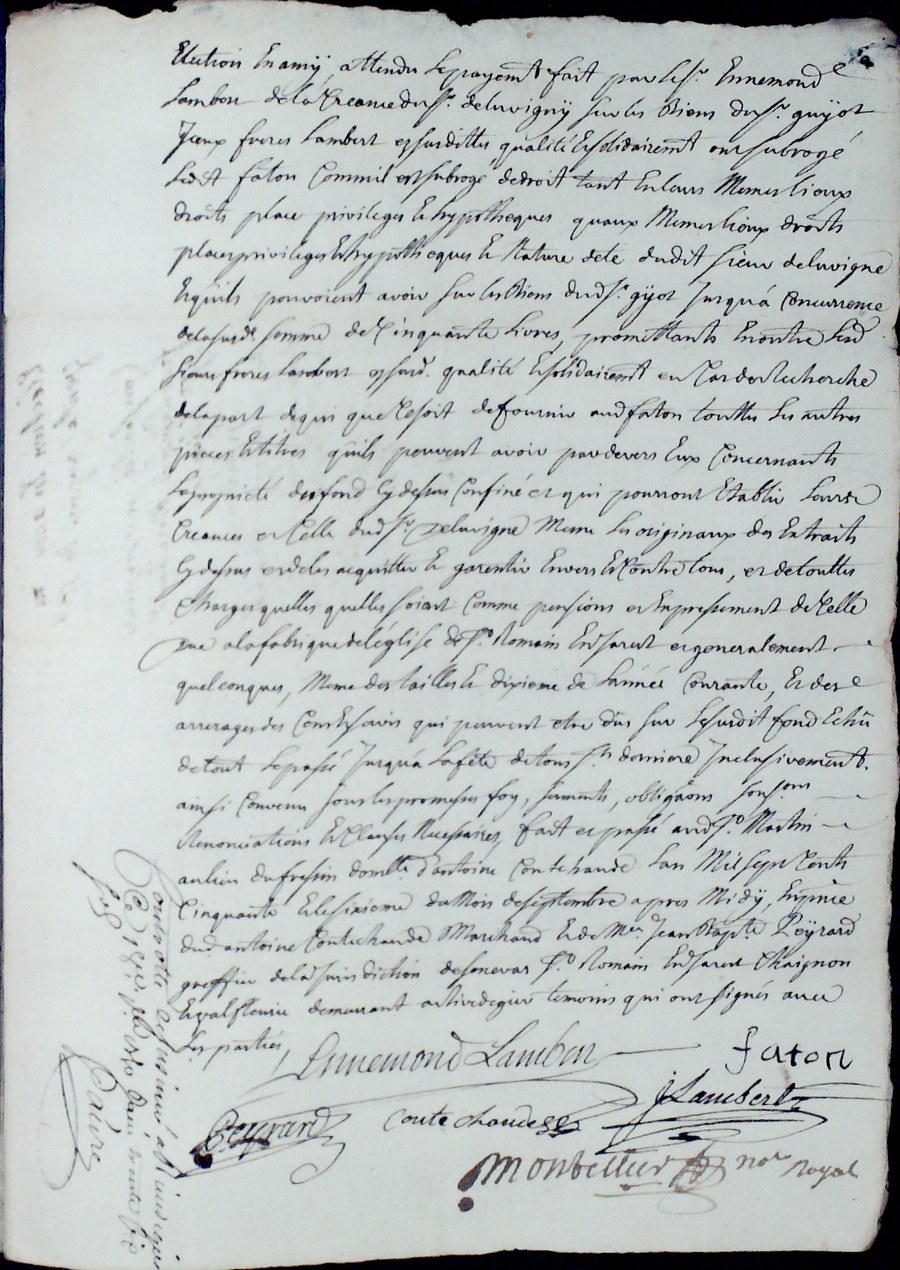 Election En amy, attendu le payemt fait par le Sr. Ennemond
Lambert de la Creance du Sr. deluvigny sur les Biens du Sr. guyot
Iceux freres Lambert es susdittes qualité & solidairemt ont subrogé
ledit faton Commil est subrogé de droit tant En leurs Memes lieux
droits place privileges & hypotheques quaux Memes lieux droits
places privileges & hypotheques & Nature dete dudit sieur deluvigne
& quils pouvoient avoir sur les Biens dud Sr. gyot Jusquá Concurrence
de la susde somme de Cinquante livres, promettants En outre lesd
sieurs freres Lambert es susd. qualité & solidairemt en Cas de Recherche
de la part de qui que Ce soit de fournir aud faton touttes les autres
pieces & titres quils peuvent avoir par devers Eux Concernants
la propriété des fond Cy dessus Confiné et qui pourront Etablir leurs
Creances et Celle dud Sr. deluvigne Meme les originaux des Extraits
Cy dessus et de les acquitter & garentir Envers & Contre tous, et de touttes
Charges quelles quelles soient Comme pensions et Expressement de Celle
due a la fabrique de léglise de St. Romain En Jarest et generalement
quelconques, Meme des tailles & dixieme de Lánnée Courante, Et des
arrerages des Cens & servis qui peuvent etre dus sur le susdit fond Echû
de tout le passé Jusquá la féte de tous Sts derniere Inclusivement.
ainsi Convenu sous les promesses foy, serments, obligaons
Renonciations & Clauses Necessaires, fait et passé aud St. Martin
au lieu du fressin domlle d'antoine Contechande Lan Mil sept Cents
Cinquante & le sixieme du Mois de septembre apres Midÿ, En pnce
dud antoine Contechande Marchand & de Me. Jean Bapte Peÿrard
greffier de la Jurisdiction de senevas St. Romain En Jarest Chaignon
& valfleurie demeurant a rive de gier temoins qui ont signés avec
les parties,
Ennemond Lambert faton
JLambert
Peyrard contechande
Montellier nore Royal
Controllé
Ce